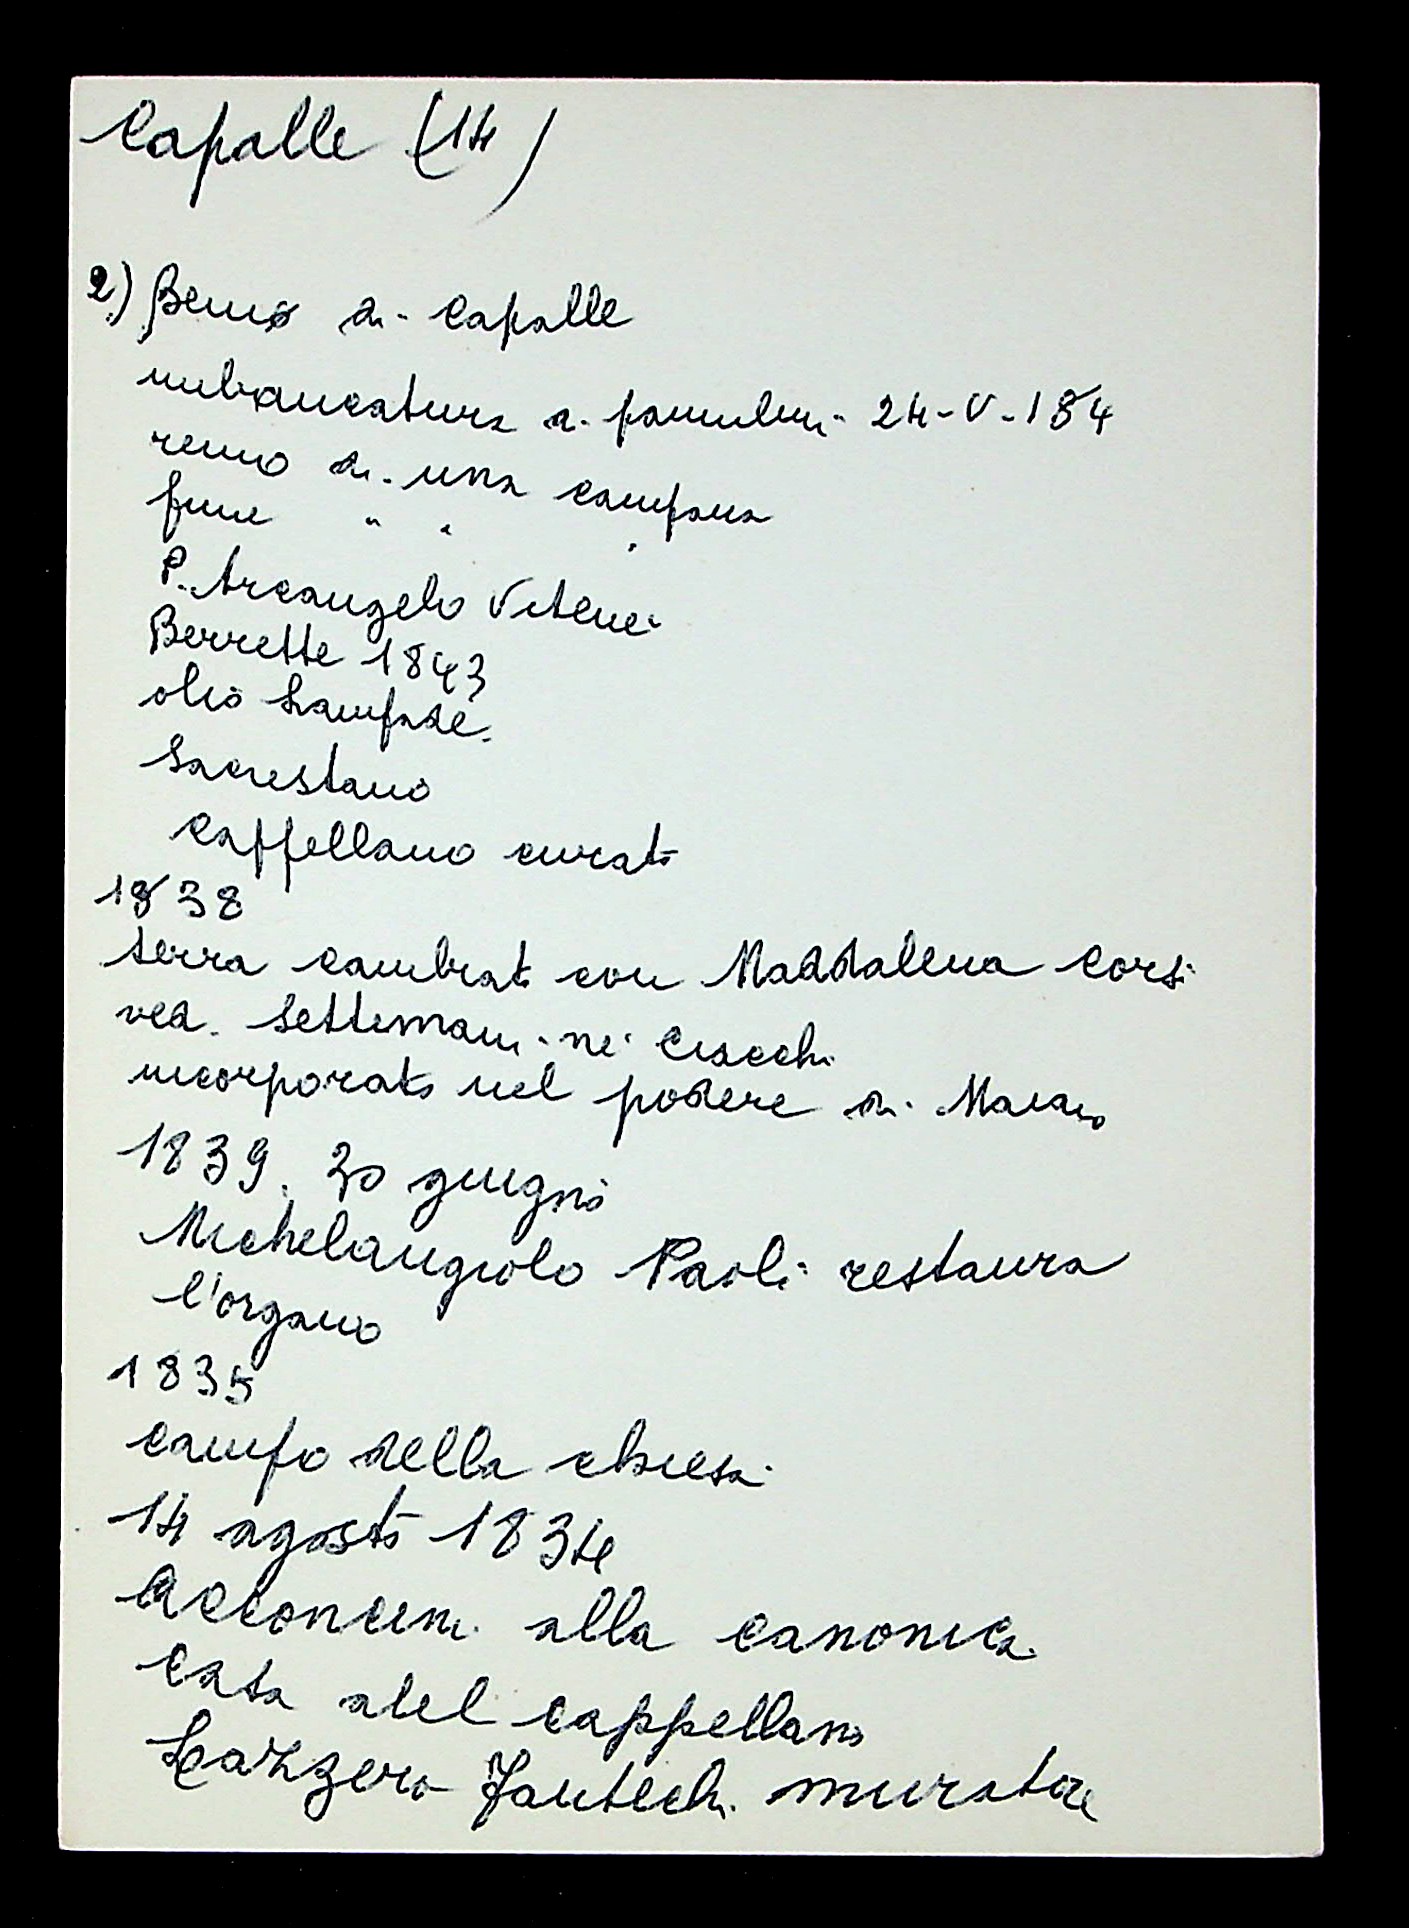 Capalle (14)
2) Beni di Capalle
imbiancatura 24-V-184
remo di una campana
fune " " "
P. Arcangelo
Berrette 1843
olio Lampade
Sacrestano
Cappellano curato
1838
terra cambiata con Maddalena Corsi
ved. Settimani ne' Ciacchi
incorporato nel podere di Macario
1839. 30 giugno
Michelangiolo Paoli restaura
l'organo
1835
campo della chiesa
14 agosto 1834
Acconcimi alla canonica
Casa del cappellano
Lazzero Fantechi muratore